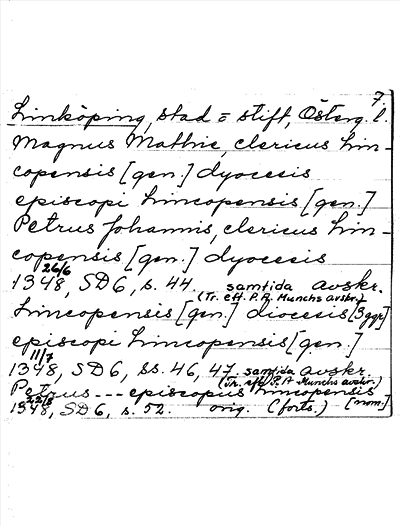 7.
Linköping, stad o stift, Österg. l.
Magnus Mathie, clericus Lin-
copensis [gen.] dyocesis
episcopi Lincopensis [gen.]
Petrus Johannis, clericus Lin-
copensis [gen.] dyocesis
26/6
1348, SD6, s. 44. samtida avskr.
(Tr. eft. P. A. Munchs avskr.)
Lincopensis [gen.] diocesis [3 ggr]
episcopi Lincopensis [gen.]
11/7
1348, SD6, ss. 46, 47. samtida avskr.
(Tr. eft. P. A Munchs avskr.)
Petrus --- episcopus Lincopensis
22/8 [nom.]
1348, SD6, s. 52. orig. (forts.)